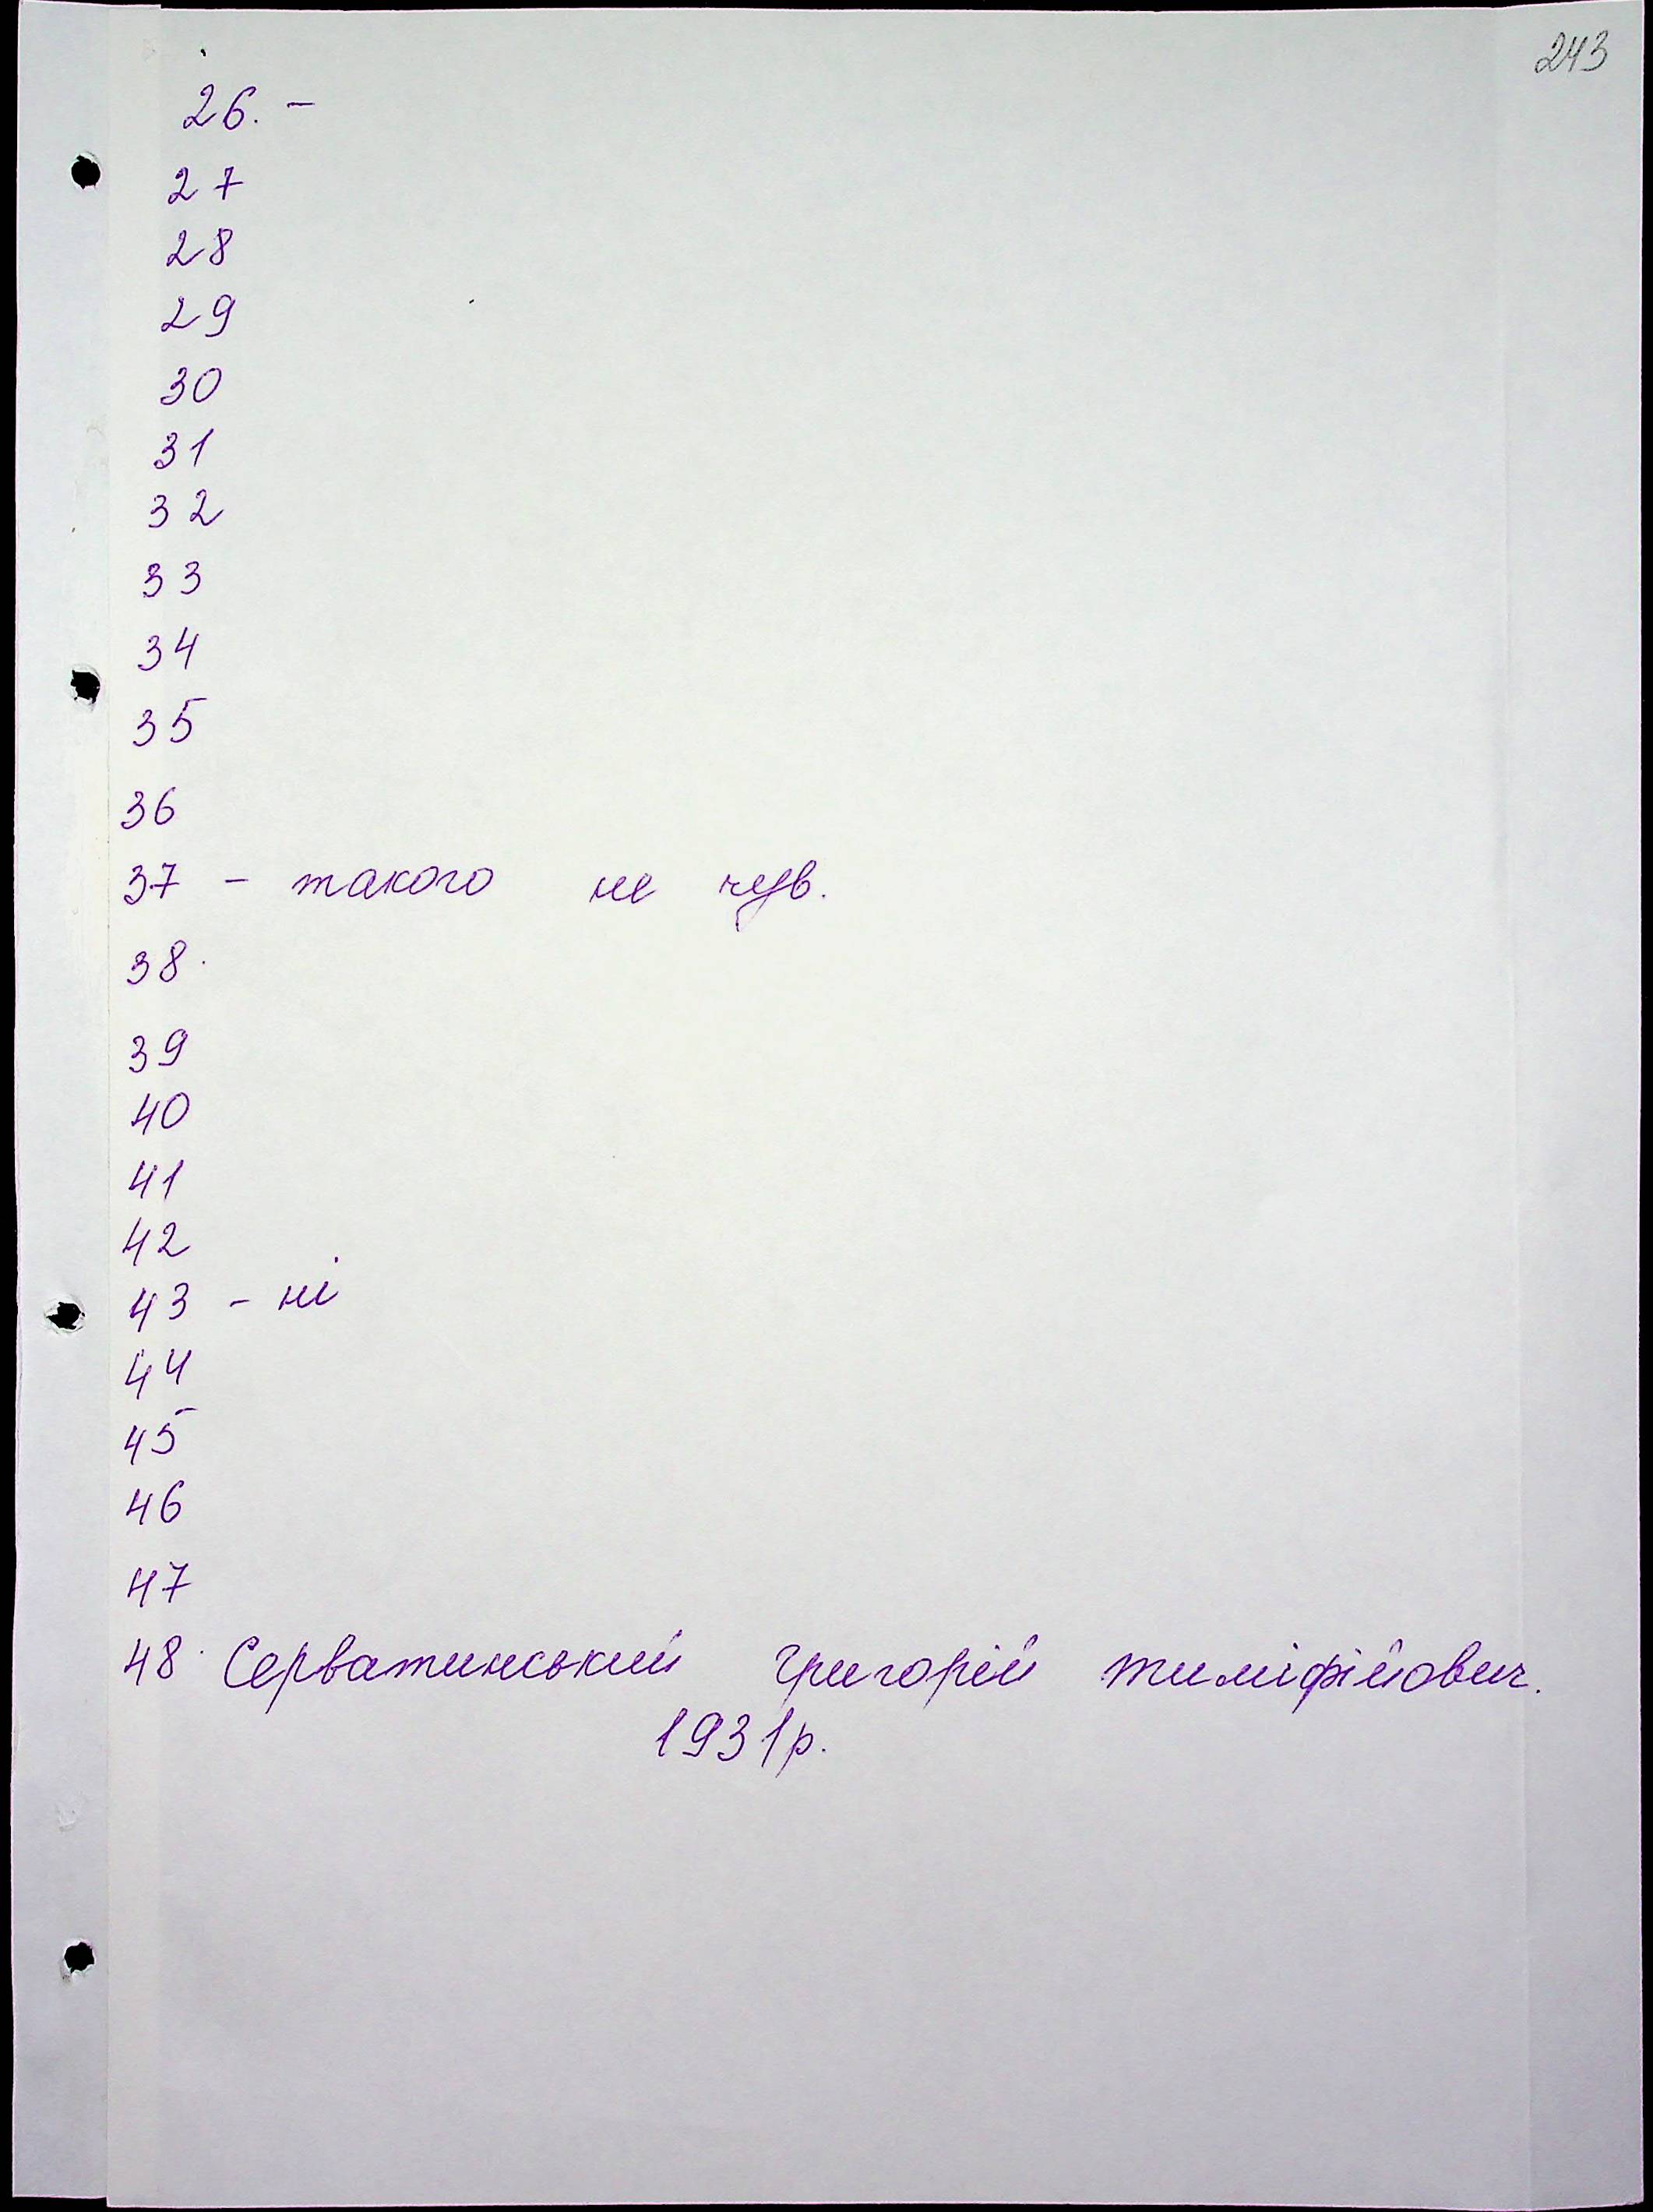 243
26. -
27
28
29
30
31
32
33
34
35
36
37 - такого не чув.
38.
39
40
41
42
43 - ні
44
45
46
47
48. Серватинський Григорій Тиміфійович.
1931р.